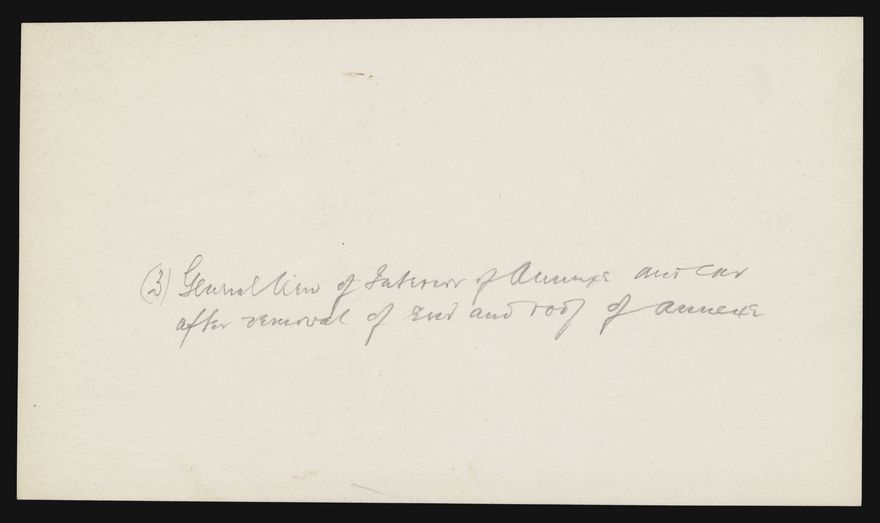 (3) General View of Interior of Annexe and car
after removal of End and roof of annexe